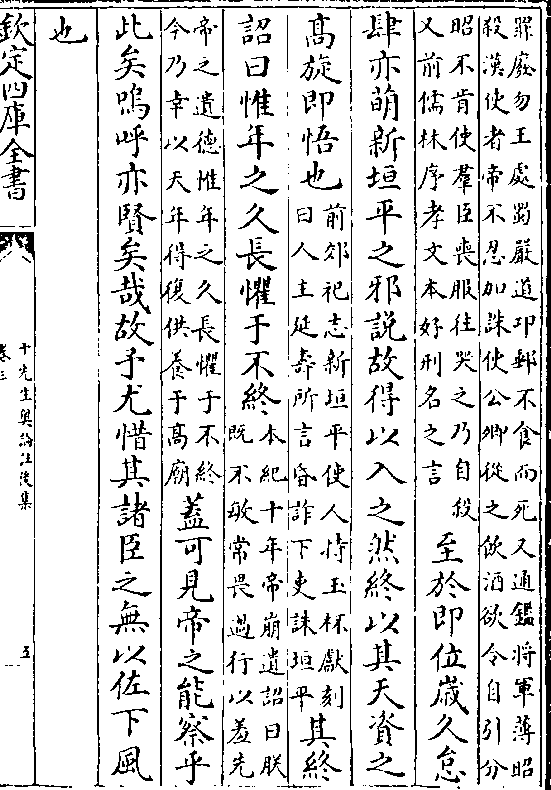 罪廢勿王處蜀嚴道卭郵不食而死又通鑑將軍薄昭
殺漢使者帝不忍加誅使公卿從之飲酒欲令自引分
昭不肯使羣臣喪服往哭之乃自殺
又前儒林序孝文本好刑名之言
至於即位歲久怠
肆亦萌新垣平之邪說故得以入之然終以其天資之
髙旋即悟也
前郊祀志新垣平使人持玉杯獻刻
曰人主延壽所言昏詐下吏誅垣平
其終
詔曰惟年之久長懼于不終
本紀十年帝崩遺詔曰朕
既不敏常畏過行以羞先
帝之遺德惟年之久長懼于不終
今乃幸以天年得復供養于髙廟
蓋可見帝之能察乎
此矣嗚呼亦賢矣哉故予尤惜其諸臣之無以佐下風
也
欽定四庫全書
十先生奧論註後集
卷三
五